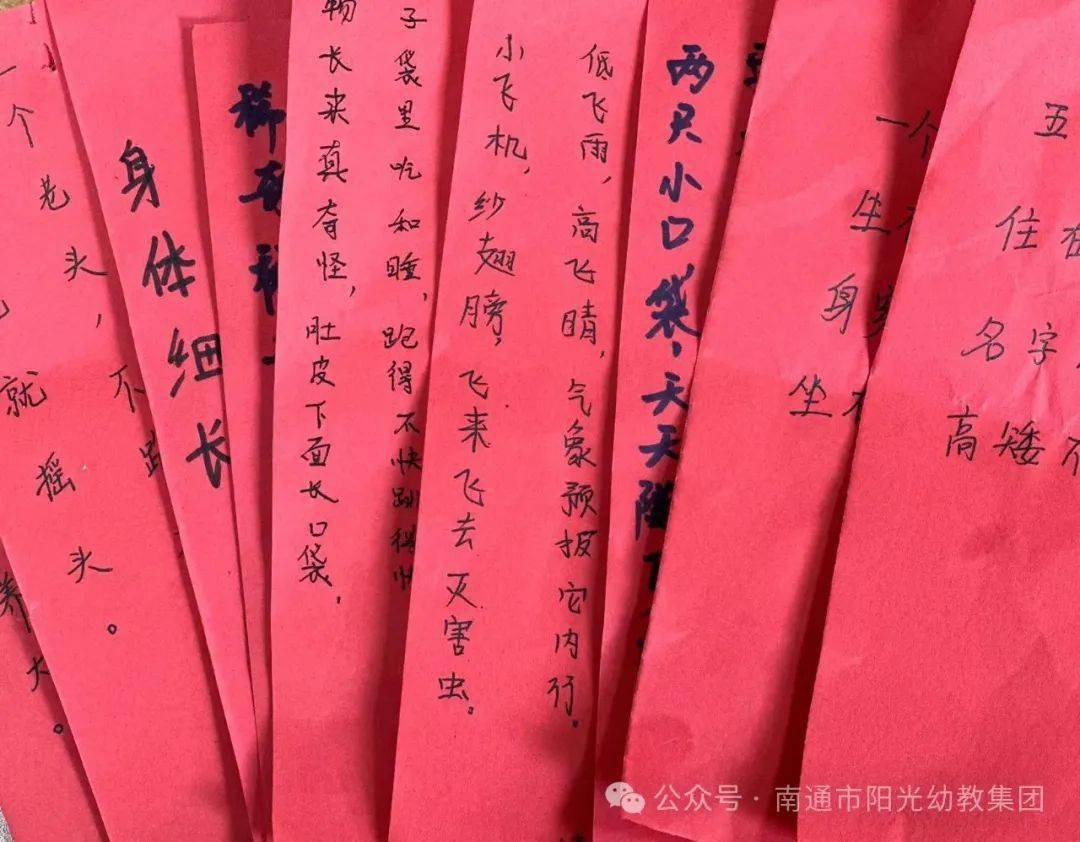 一个老头，不跑
就摇头。
养大。
身体细长
稀奇
长来真奇怪，肚皮下面长口袋，
子袋里吃和睡，跑得不快跳得快
小飞机，纱翅膀，飞来飞去灭害虫。
低飞雨，高飞晴，气象预报它内行。
两只小口袋，天天
一个
坐
身
坐
五
住在
名字
高矮不
公众号·南通市阳光幼教集团